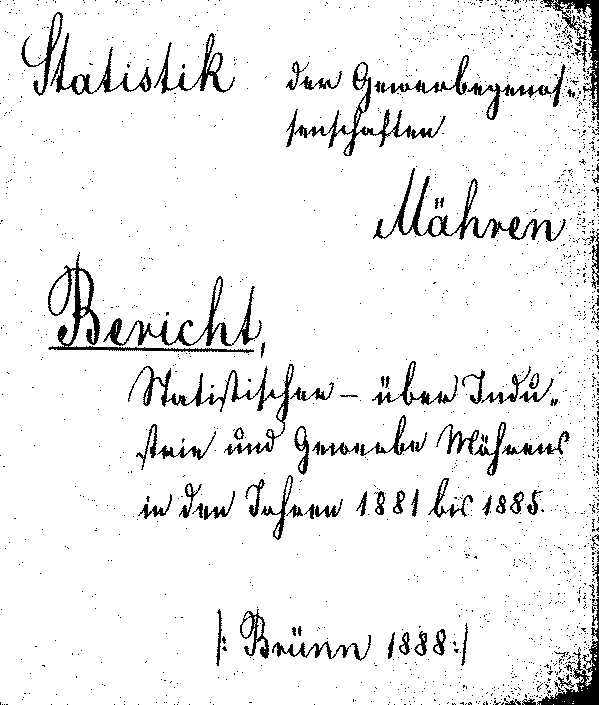 Statistik der Gewerbegenos-
senschaften
Mähren
Bericht,
Statistischer – über Indu-
strie und Gewerbe Mährens
in den Jahren 1881 bis 1885.
|: Brünn 1888 :|